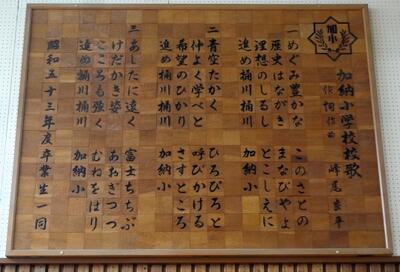 加小
加納小学校校歌
作詞作曲 峰尾 幸平
一 めぐみ豊かな このさとの
歴史はながき まなびやよ
理想のしるし とこしえに
進め桶川桶川 加納小
二 青空たかく ひろびろと
仲よく学べと 呼びかける
希望のひかり さすところ
進め桶川桶川 加納小
三 あしたに遠く 富士ちちぶ
けだかき姿 あおぎつつ
こころも強く むねをはり
進め桶川桶川 加納小
昭和五十三年度卒業生一同